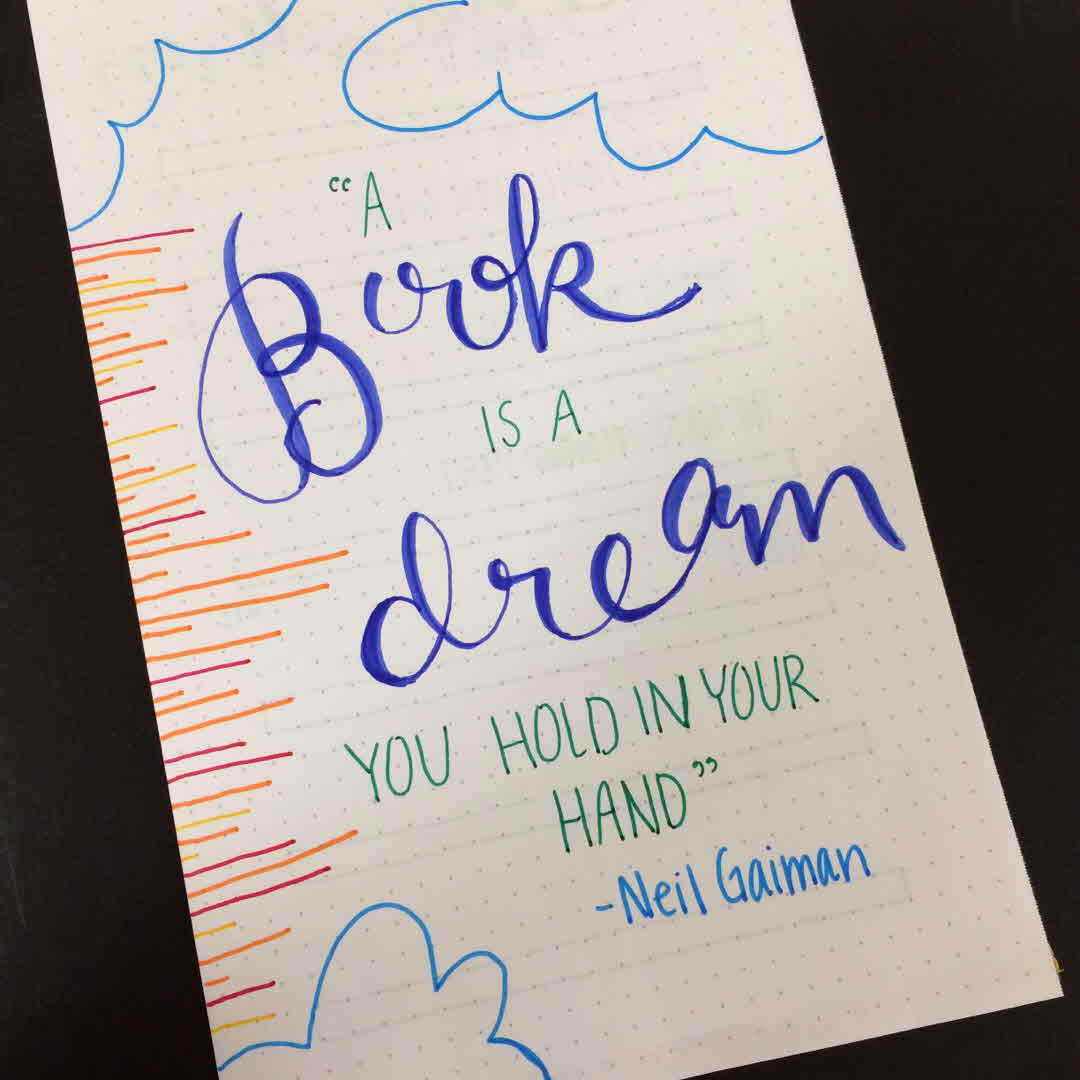 “A
Book
IS A
dream
YOU HOLD IN YOUR
HAND”
-Neil Gaiman